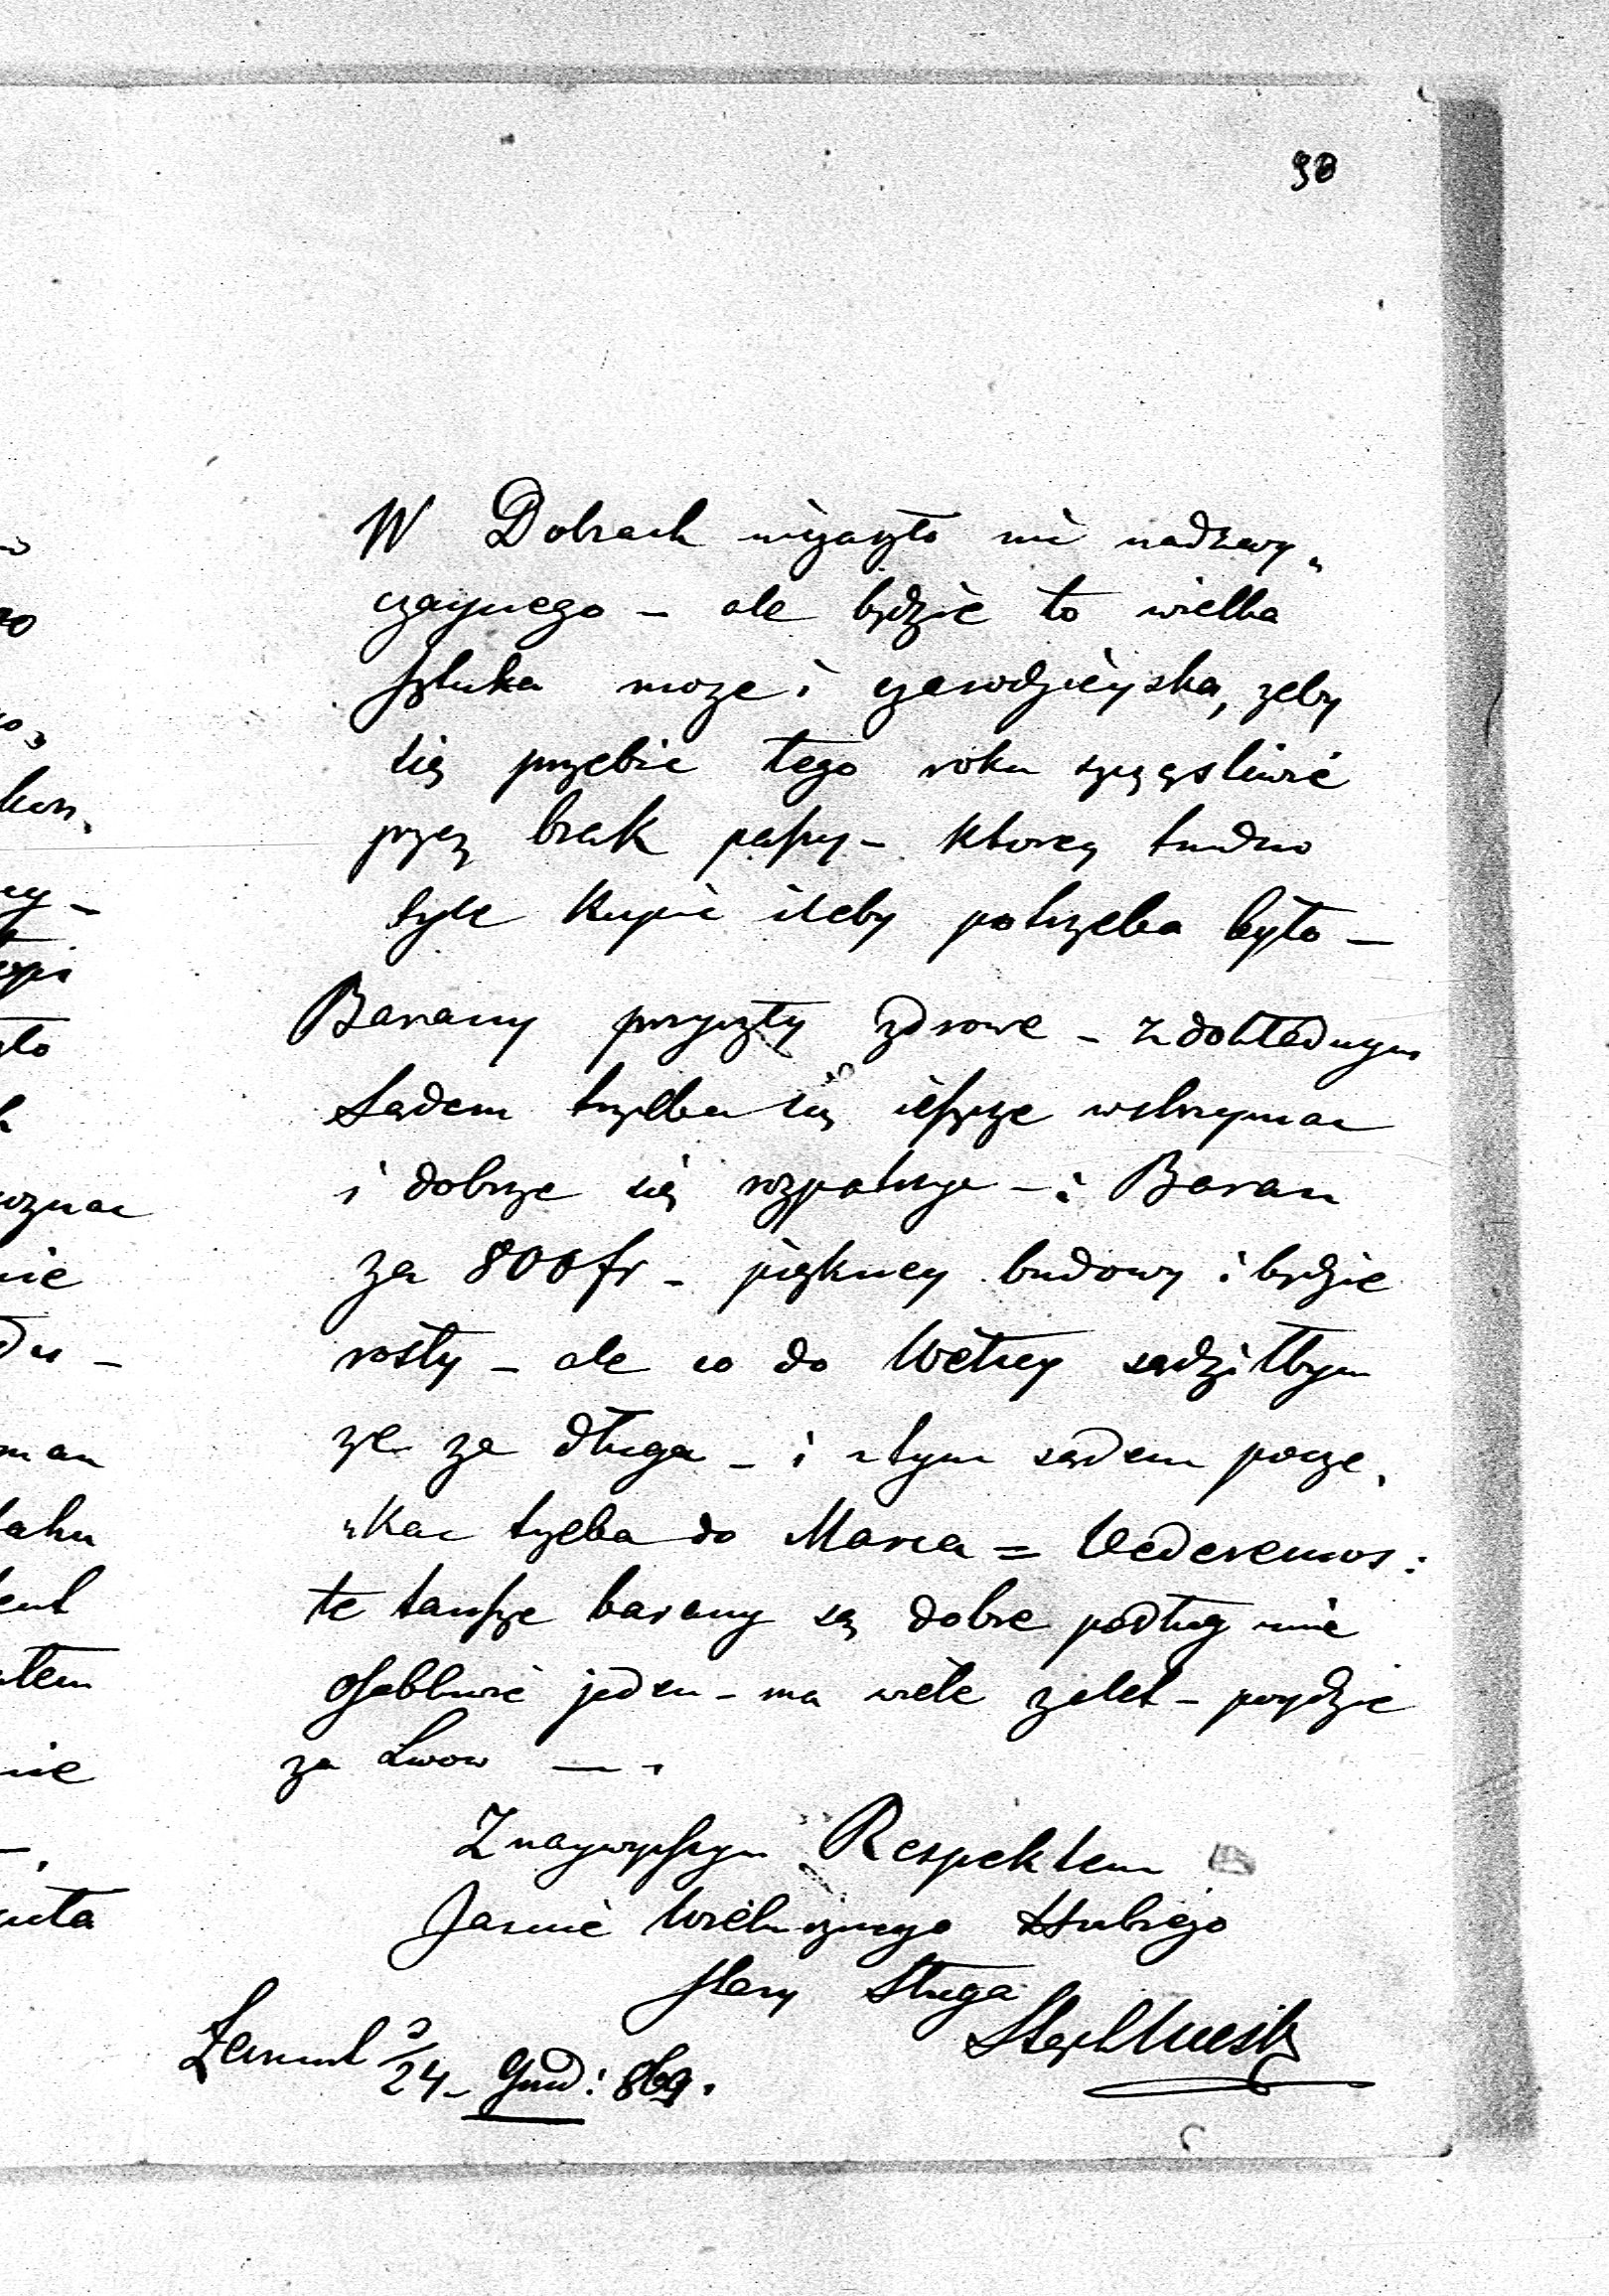 98
W Dobrach niezaszło nic nadzwy„
czaynego – ale będzie to wielka
sztuka moze i czarodzieyska, zeby
się przebic tego roku szczęsliwie
przez brak paszy – ktorey trudno
tyle kupic ileby potrzeba było –
Barany przyszły zdrowe – z dokładnym
Sądem trzeba się ieszcze wstrzymac
i dobrze się rozpatrzyc – i Baran
za 800 fr – piękney budowy i będzie
rosły – ale co do Wełny sądziłbym
ze za długa – i z tym sądem pocze„
„kac trzeba do Marca = Vederemos:
te tansze barany są dobre podług mnie
osobliwie jeden – ma wiele zalet – poydzie
za Lwow — .
Z naywyzszym Respektem
Jasnie Wielmoznego Hrabiego
stary Sługa
24 – Grud: 869.